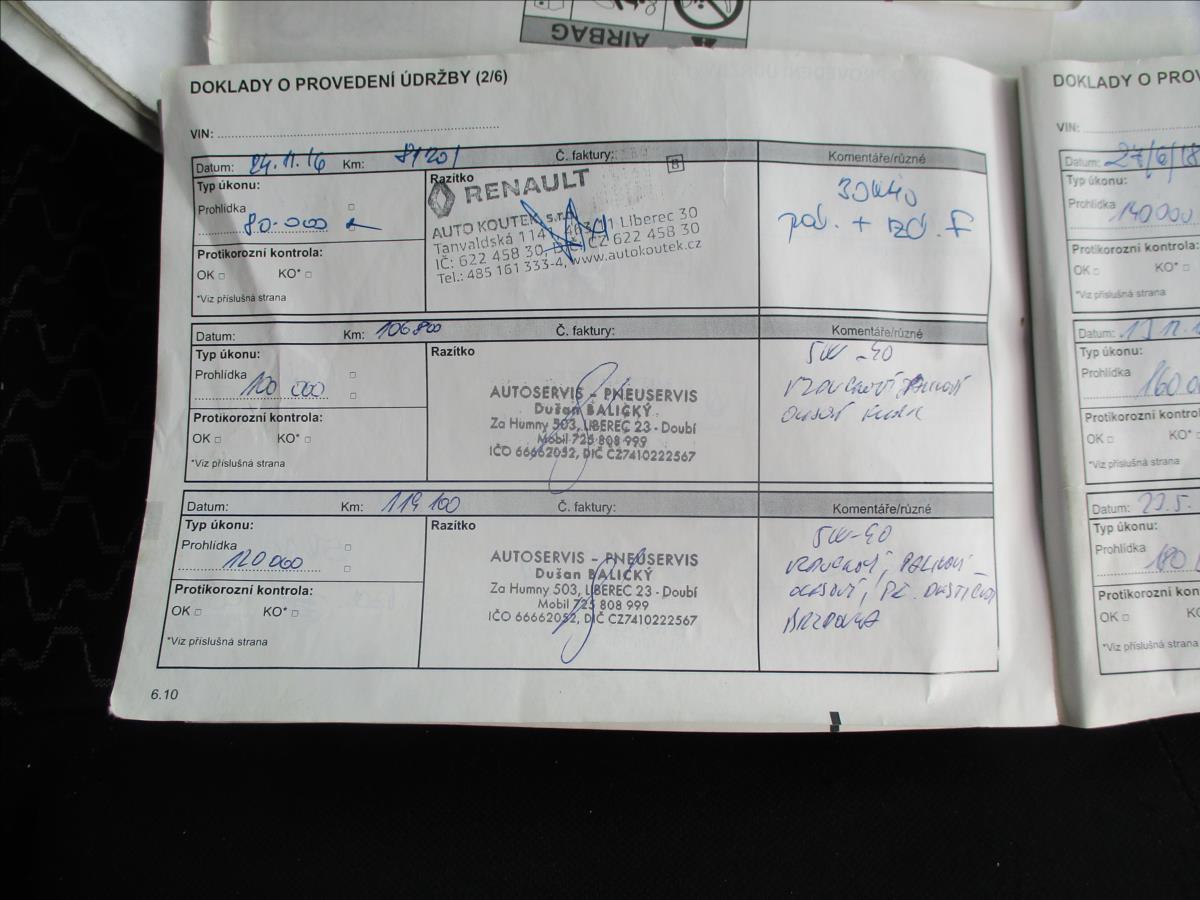 AIRBAG
DOKLADY O PROVEDENÍ ÚDRŽBY (2/6)
VIN:
Datum: 24.11.16 Km: 81201 Č. faktury: B Komentáře/různé
Typ úkonu:
Prohlídka
80.000
Protikorozní kontrola:
OK KO*
*Viz příslušná strana
Razítko
RENAULT
AUTO KOUTEK s.r.o.
Tanvaldská 114 463 11 Liberec 30
IČ: 622 458 30, DIČ: CZ 622 458 30
Tel.: 485 161 333-4, www.autokoutek.cz
30W40
+ F
Datum: Km: 106800 Č. faktury: Komentáře/různé
Typ úkonu:
Prohlídka
100 000
Protikorozní kontrola:
OK KO*
*Viz příslušná strana
Razítko
AUTOSERVIS - PNEUSERVIS
Dušan BALICKÝ
Za Humny 503, LIBEREC 23 - Doubí
Mobil 725 808 999
IČO 66662052, DIČ CZ7410222567
5W-40
Datum: Km: 119 100 Č. faktury: Komentáře/různé
Typ úkonu:
Prohlídka
120 000
Protikorozní kontrola:
OK KO*
*Viz příslušná strana
Razítko
AUTOSERVIS - PNEUSERVIS
Dušan BALICKÝ
Za Humny 503, LIBEREC 23 - Doubí
Mobil 725 808 999
IČO 66662052, DIČ CZ7410222567
5W-40
6.10
DOKLADY O PROV
VIN:
Datum: 27/6/18
Typ úkonu:
Prohlídka
140000
Protikorozní kontrola:
OK KO*
*Viz příslušná strana
Datum:
Typ úkonu:
Prohlídka
Protikorozní kontrola:
OK KO*
*Viz příslušná strana
Datum:
Typ úkonu:
Prohlídka
Protikorozní kontrola:
OK
*Viz příslušná strana